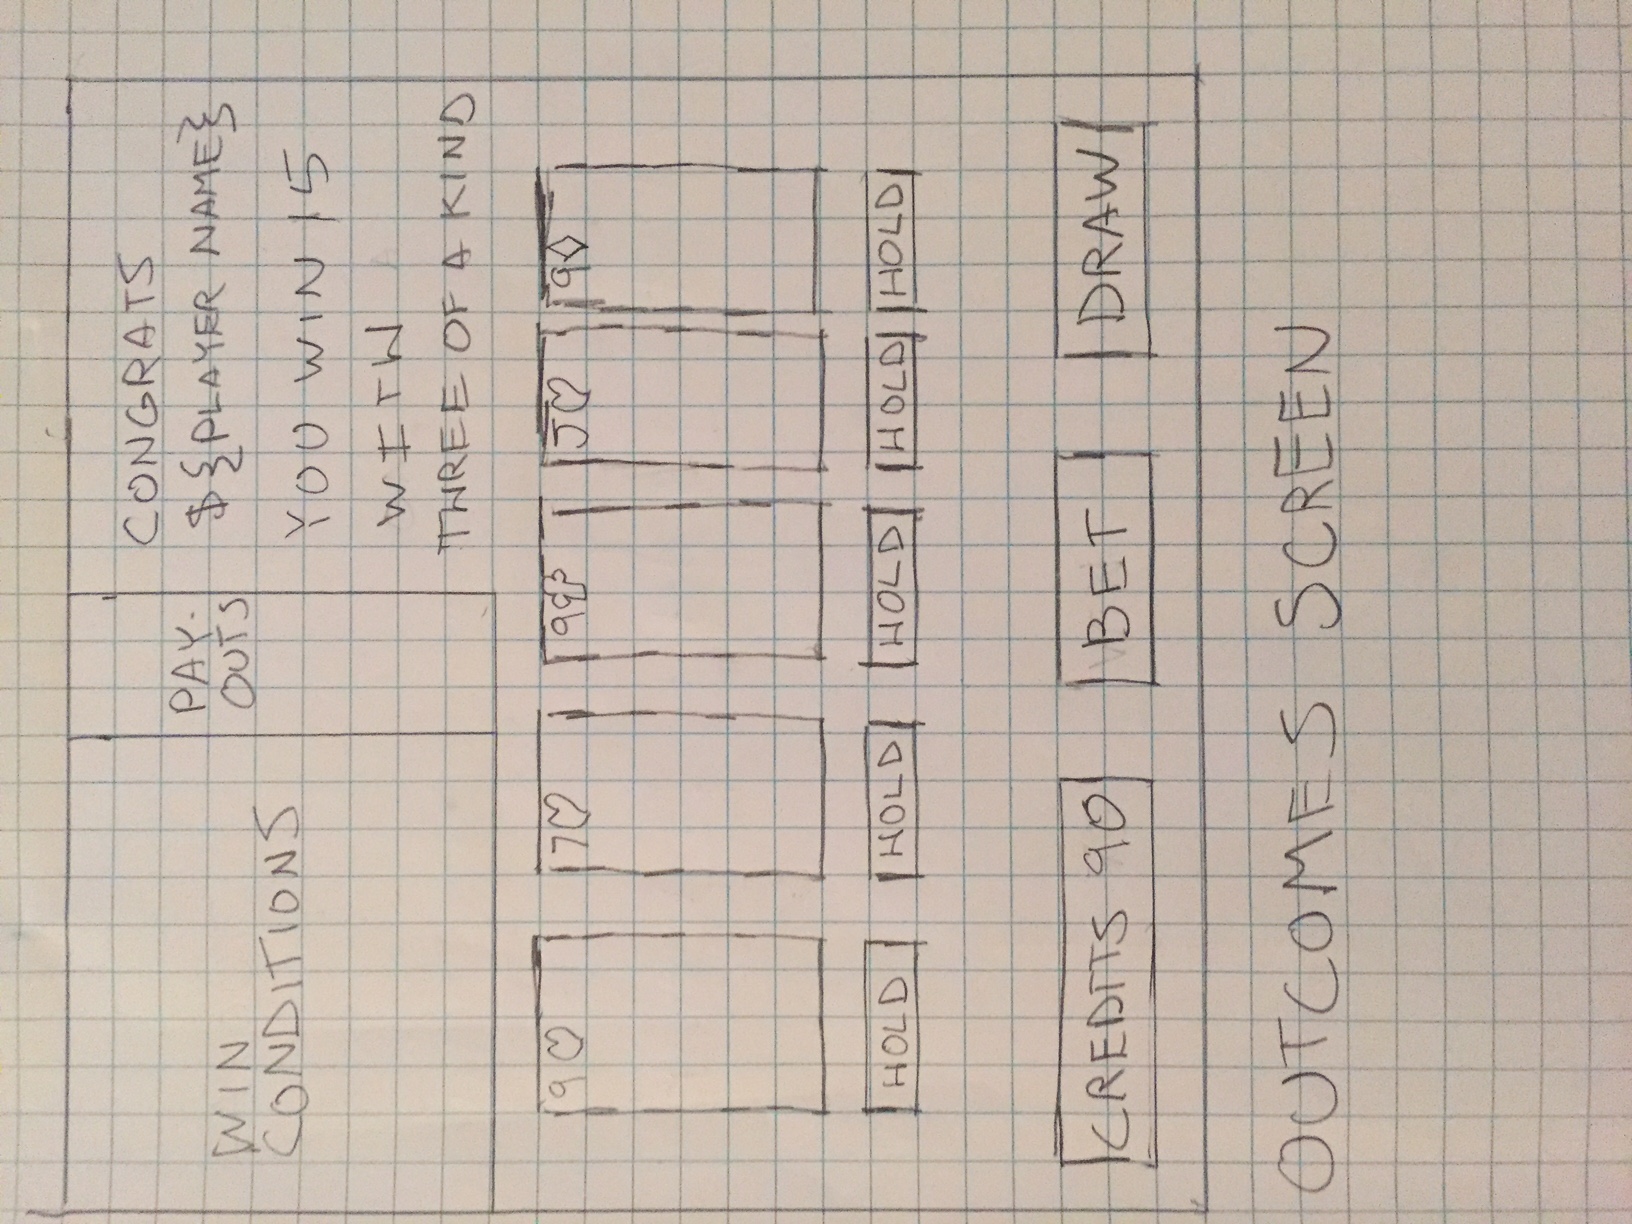 WIN
CONDITIONS
PAY-
OUTS
CONGRATS
${PLAYER NAME}
YOU WIN 15
WITH
THREE OF A KIND
9♡ 7♡ 9♧ J♡ 9♢
HOLD HOLD HOLD HOLD HOLD
CREDITS 90 BET DRAW
OUTCOMES SCREEN